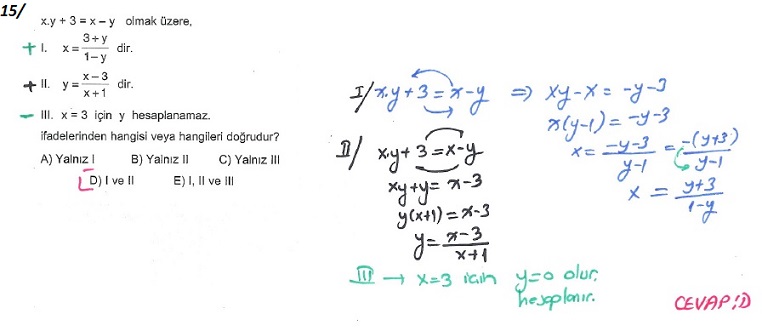 15/
x.y + 3 = x – y olmak üzere,
+ I. x = \frac{3+y}{1-y} dir.
+ II. y = \frac{x-3}{x+1} dir.
– III. x = 3 için y hesaplanamaz.
ifadelerinden hangisi veya hangileri doğrudur?
A) Yalnız I B) Yalnız II C) Yalnız III
D) I ve II E) I, II ve III
I/ x.y+3 = x-y ⇒ xy-x = -y-3
x(y-1) = -y-3
x = \frac{-y-3}{y-1} = \frac{-(y+3)}{y-1}
x = \frac{y+3}{1-y}
II/ x.y+3 = x-y
xy+y = x-3
y(x+1) = x-3
y = \frac{x-3}{x+1}
III → x=3 için y=0 olur.
hesaplanır.
CEVAP:D